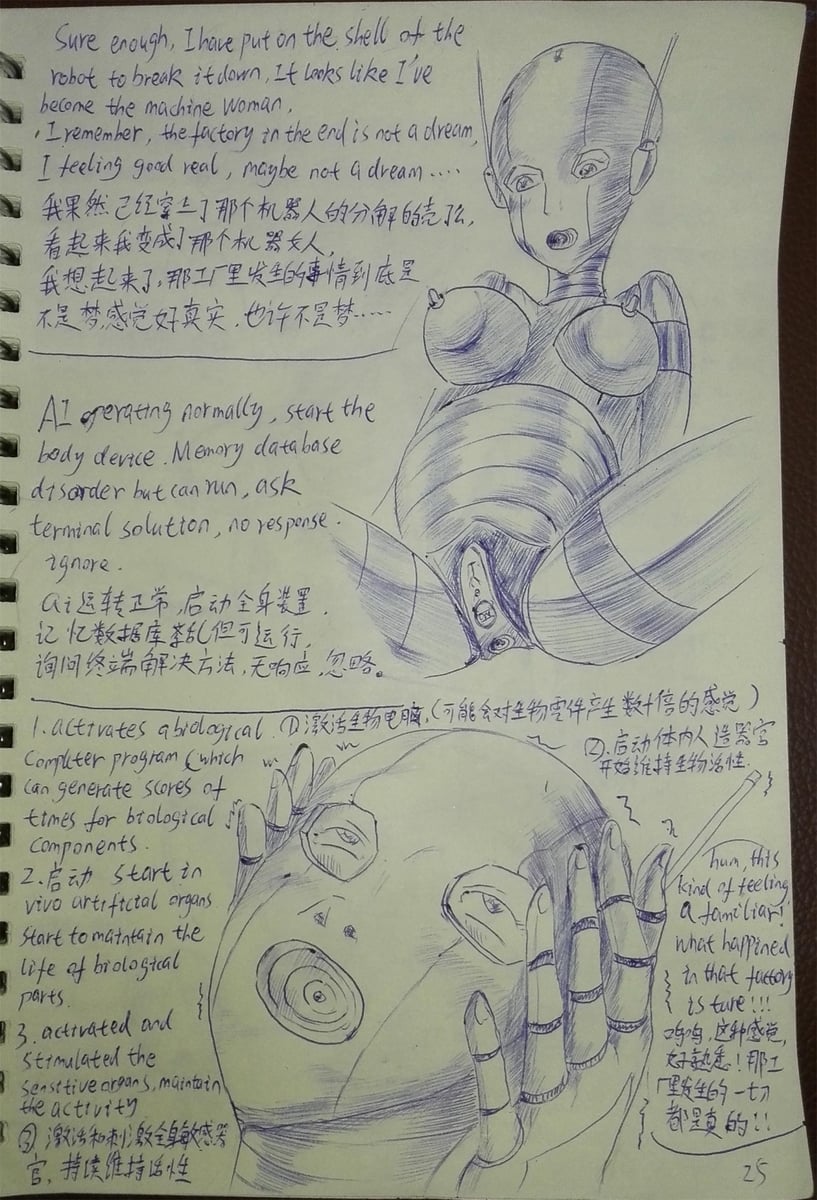 Sure enough, I have put on the shell of the
robot to break it down, It looks like I've
become the machine woman.
I remember, the factory in the end is not a dream,
I feeling good real, maybe not a dream ....
我果然已经穿上了那个机器人的分解的壳了,
看起来我变成了那个机器女人,
我想起来了,那工厂里发生的事情到底是
不是梦,感觉好真实,也许不是梦......
AI operating normally, start the
body device. Memory database
disorder but can run, ask
terminal solution, no response.
ignore.
ai运转正常,启动全身装置,
记忆数据库紊乱但可运行,
询问终端解决方法,无响应,忽略。
1. activates a biological
Computer program (which
can generate scores of
times for biological
components.
①激活生物电脑,(可能会对生物零件产生数十倍的感觉)
②.启动体内人造器官
开始维持生物活性.
2.启动 start in
vivo artificial organs
start to maintain the
life of biological
parts.
3. activated and
stimulated the
sensitive organs, maintain
the activity
③激活和刺激全身敏感器
官,持续维持活性
hum this
kind of feeling
a familiar!
what happined
in that factory
is ture!!!
呜呜,这种感觉,
好熟悉!那工
厂里发生的一切
都是真的!!
25